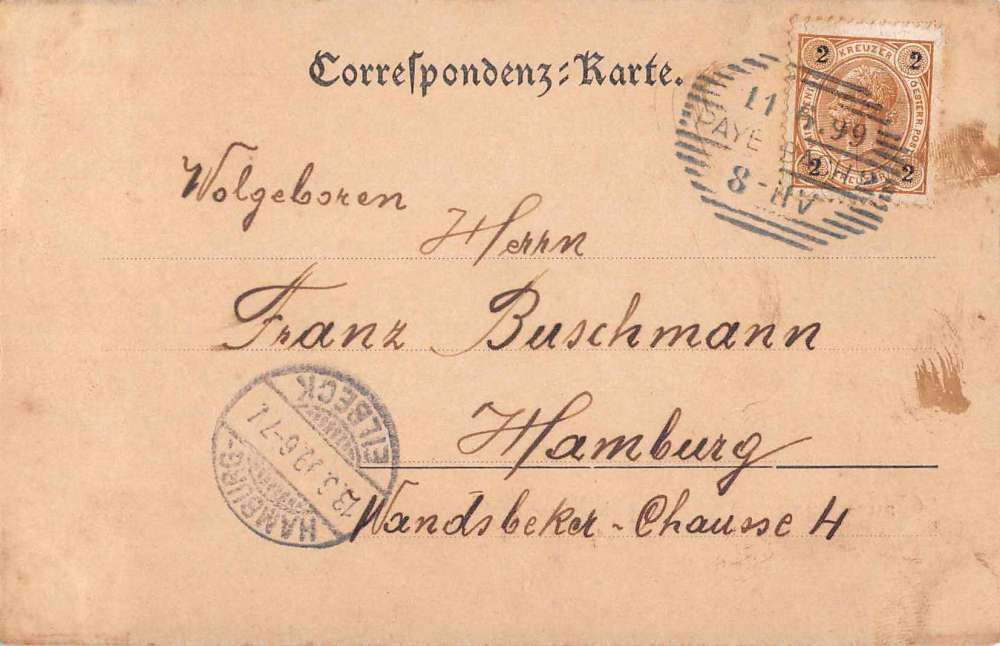 Correspondenz-Karte.
2 KREUZER 2
OESTERR. POST
2 KREUZER 2
99
8-
Wolgeboren
Herrn
Franz Buschmann
Hamburg
Wandsbeker-Chausse 4
HAMBURG.
EILBECK.